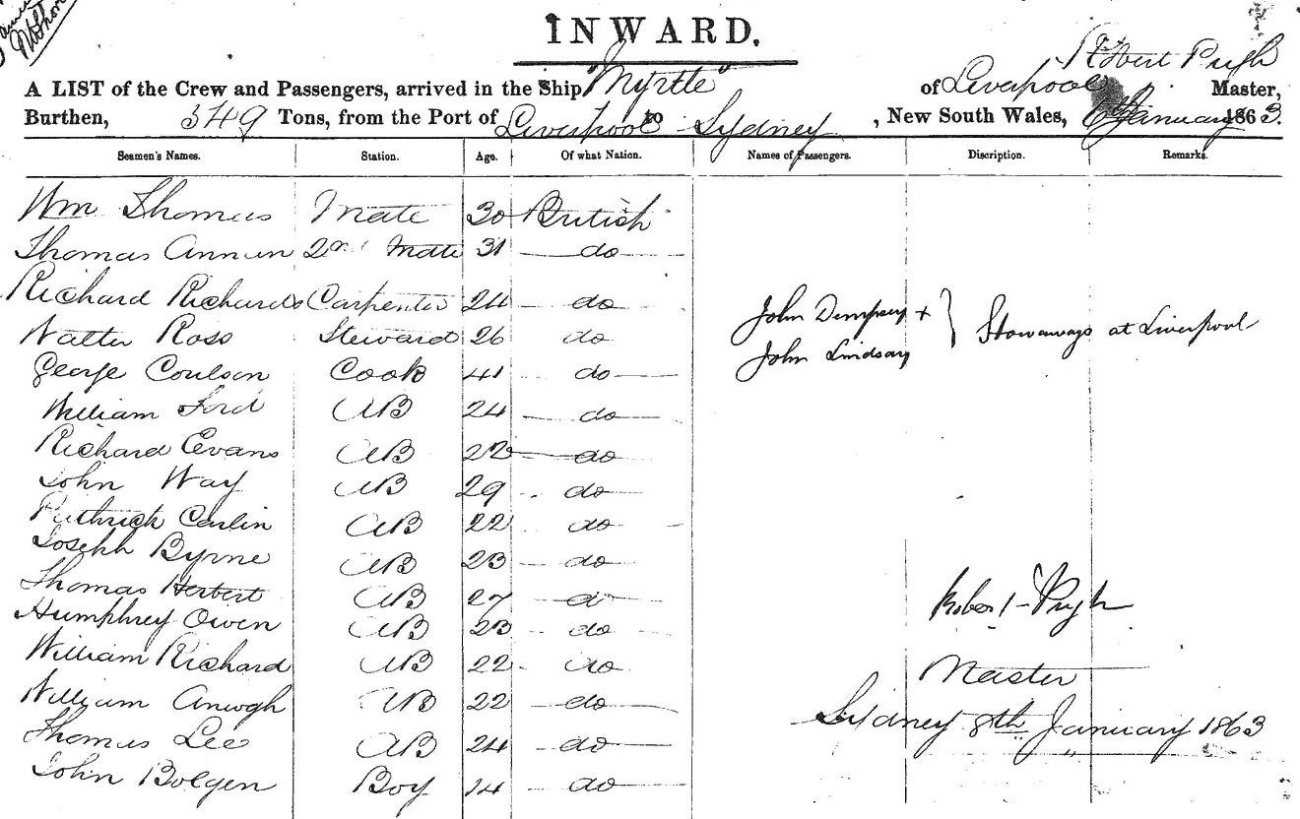 INWARD.
Robert Pugh
A LIST of the Crew and Passengers, arrived in the Ship "Myrtle" of Liverpool Master,
Burthen, 349 Tons, from the Port of Liverpool to Sydney, New South Wales, January 1863.
Seamen's Names. Station. Age. Of what Nation. Names of Passengers. Discription. Remarks.
Wm Thomas Mate 30 British
Thomas 2nd Mate 31 do
Richard Richards Carpenter 24 do
Walter Ross Steward 26 do
John Dempsey + } Stowaways at Liverpool
John Lindsay
George Coulson Cook 41 do
William Ford AB 24 do
Richard Evans AB 22 do
John Way AB 29 do
Carlin AB 22 do
Joseph Byrne AB 23 do
Thomas Herbert AB 27 do
Humphrey Owen AB 23 do
Robert Pugh
William Richard AB 22 do
Master
William AB 22 do
Sydney 8th January 1863
Thomas Lee AB 24 do
John Bolgen Boy 14 do